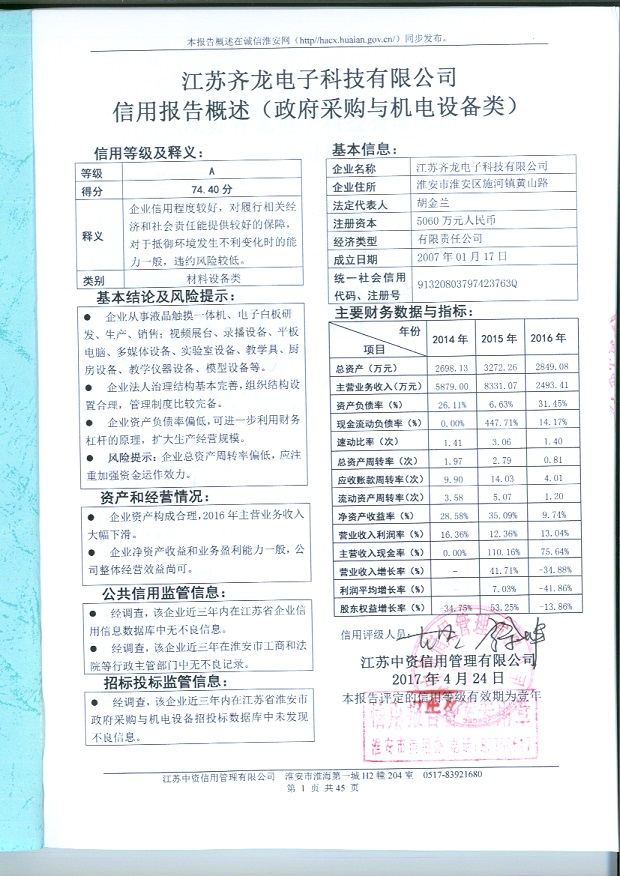 本报告概述在诚信淮安网（http//hacx.huaian.gov.cn/）同步发布。
江苏齐龙电子科技有限公司
信用报告概述（政府采购与机电设备类）
信用等级及释义：
等级 A
得分 74.40分
释义 企业信用程度较好，对履行相关经
济和社会责任能提供较好的保障，
对于抵御环境发生不利变化时的能
力一般，违约风险较低。
类别 材料设备类
基本结论及风险提示：
● 企业从事液晶触摸一体机、电子白板研
发、生产、销售；视频展台、录播设备、平板
电脑、多媒体设备、实验室设备、教学具、厨
房设备、教学仪器设备、模型设备等。
● 企业法人治理结构基本完善，组织结构设
置合理，管理制度比较完备。
● 企业资产负债率偏低，可进一步利用财务
杠杆的原理，扩大生产经营规模。
● 风险提示：企业总资产周转率偏低，应注
重加强资金运作效力。
资产和经营情况：
● 企业资产构成合理，2016年主营业务收入
大幅下滑。
● 企业净资产收益和业务盈利能力一般，公
司整体经营效益尚可。
公共信用监管信息：
● 经调查，该企业近三年内在江苏省企业信
用信息数据库中无不良信息。
● 经调查，该企业近三年在淮安市工商和法
院等行政主管部门中无不良记录。
招标投标监管信息：
● 经调查，该企业近三年内在江苏省淮安市
政府采购与机电设备招投标数据库中未发现
不良信息。
基本信息：
企业名称 江苏齐龙电子科技有限公司
企业住所 淮安市淮安区施河镇黄山路
法定代表人 胡金兰
注册资本 5060万元人民币
经济类型 有限责任公司
成立日期 2007年01月17日
统一社会信用
代码、注册号 91320803797423763Q
主要财务数据与指标：
年份 项目 2014年 2015年 2016年
总资产（万元） 2698.13 3272.26 2849.08
主营业务收入（万元） 5879.00 8331.07 2493.41
资产负债率（%） 26.11% 6.63% 31.45%
现金流动负债率（%） 0.00% 447.71% 14.17%
速动比率（次） 1.41 3.06 1.40
总资产周转率（次） 1.97 2.79 0.81
应收账款周转率（次） 9.90 14.03 4.01
流动资产周转率（次） 3.58 5.07 1.20
净资产收益率（%） 28.58% 35.09% 9.74%
营业收入利润率（%） 16.36% 12.36% 13.04%
主营收入现金率（%） 0.00% 110.16% 75.64%
营业收入增长率（%） - 41.71% -34.88%
利润平均增长率（%） - 7.03% -41.86%
股东权益增长率（%） -34.75% 53.25% -13.86%
信用评级人员：
江苏中资信用管理有限公司
2017年4月24日
本报告评定的信用等级有效期为壹年
江苏中资信用管理有限公司 淮安市淮海第一城H2幢204室 0517-83921680
第 1 页 共 45 页